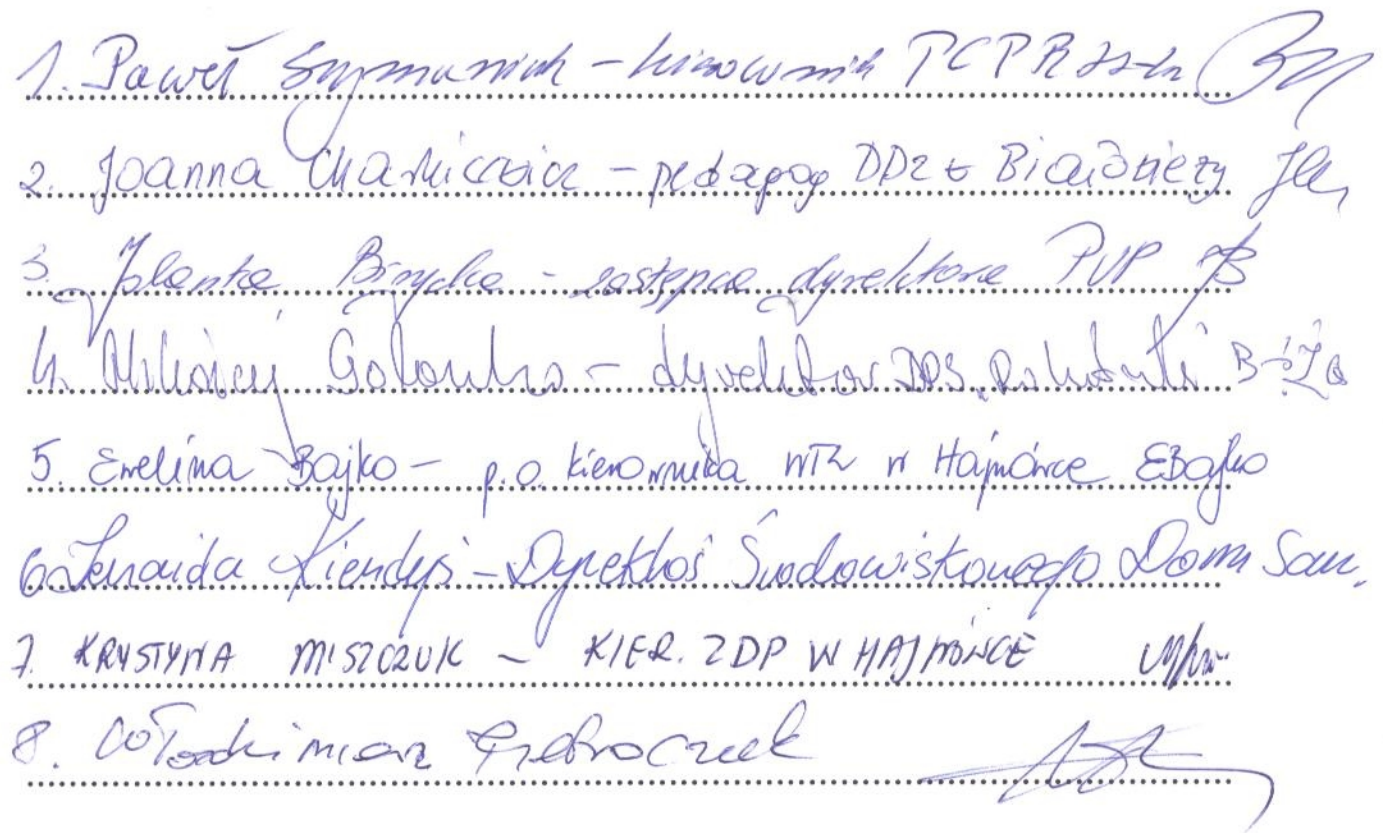 1. Paweł Szymaniuk – kierownik PCPR
2. Joanna Charkiewicz – pedagog DDz w Białowieży
3. Jolanta Birycka – zastępca dyrektora PUP
4. Mikołaj Golonko – dyrektor DPS
5. Ewelina Bajko – p.o. kierownika WTZ w Hajnówce EBajko
6. Zenaida Kiendyś – Dyrektor Środowiskowego Domu Sam.
7. KRYSTYNA MISZCZUK – KIER. ZDP W HAJNÓWCE
8. Włodzimierz